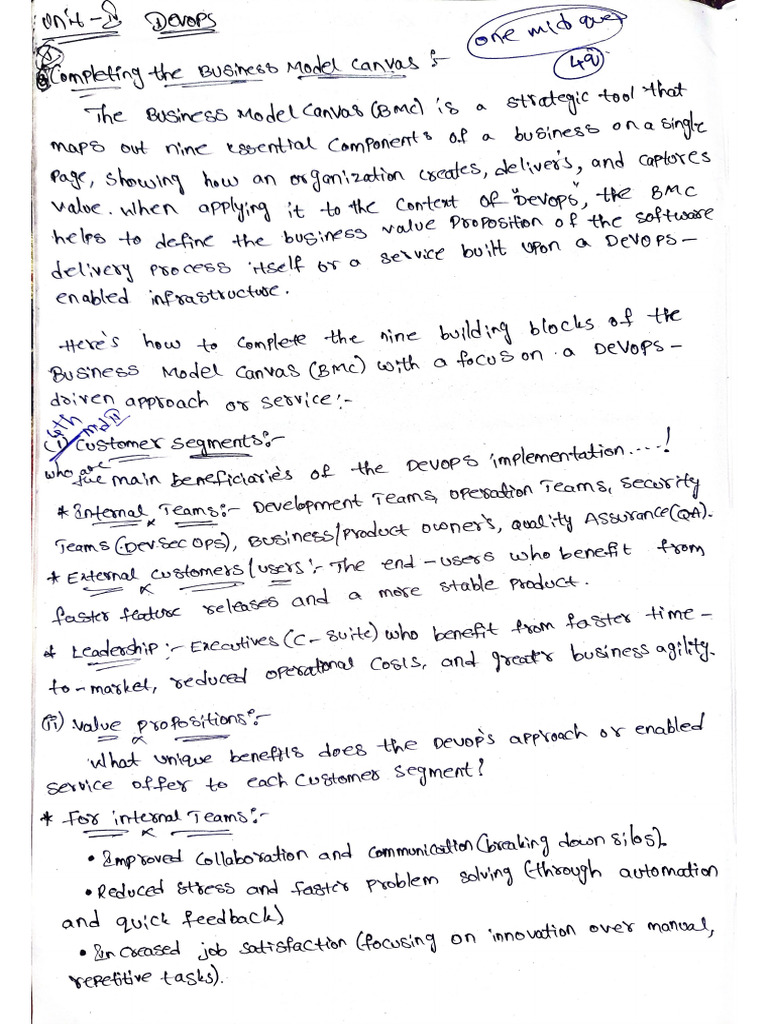 Unit-II Devops
one mid ques
4Q
Completing the Business Model Canvas :-
The Business Model Canvas (BMC) is a strategic tool that
maps out nine essential components of a business on a single
page, showing how an organization creates, deliver's, and captures
value. when applying it to the context of "Devops", the BMC
helps to define the business value proposition of the software
delivery process itself or a service built upon a DevOps-
enabled infrastructure.
Here's how to complete the nine building blocks of the
Business Model Canvas (BMC) with a focus on a DevOps-
driven approach or service:-
(i) Customer Segments:-
who are the main beneficiaries of the DevOps implementation....!
* Internal Teams:- Development Teams, operation Teams, security
Teams (DevSecOps), Business/product owner's, Quality Assurance(QA).
* External customers/users:- The end-users who benefit from
faster feature releases and a more stable product.
* Leadership:- Executives (C-suite) who benefit from faster time-
to-market, reduced operational costs, and great'r business agility.
(ii) value propositions:-
what unique benefits does the Devop's approach or enabled
service offer to each customer segment?
* For internal Teams:-
• Improved collaboration and communication (breaking down silos).
• Reduced stress and faster problem solving (through automation
and quick feedback)
• Increased job satisfaction (focusing on innovation over manual,
repetitive tasks).